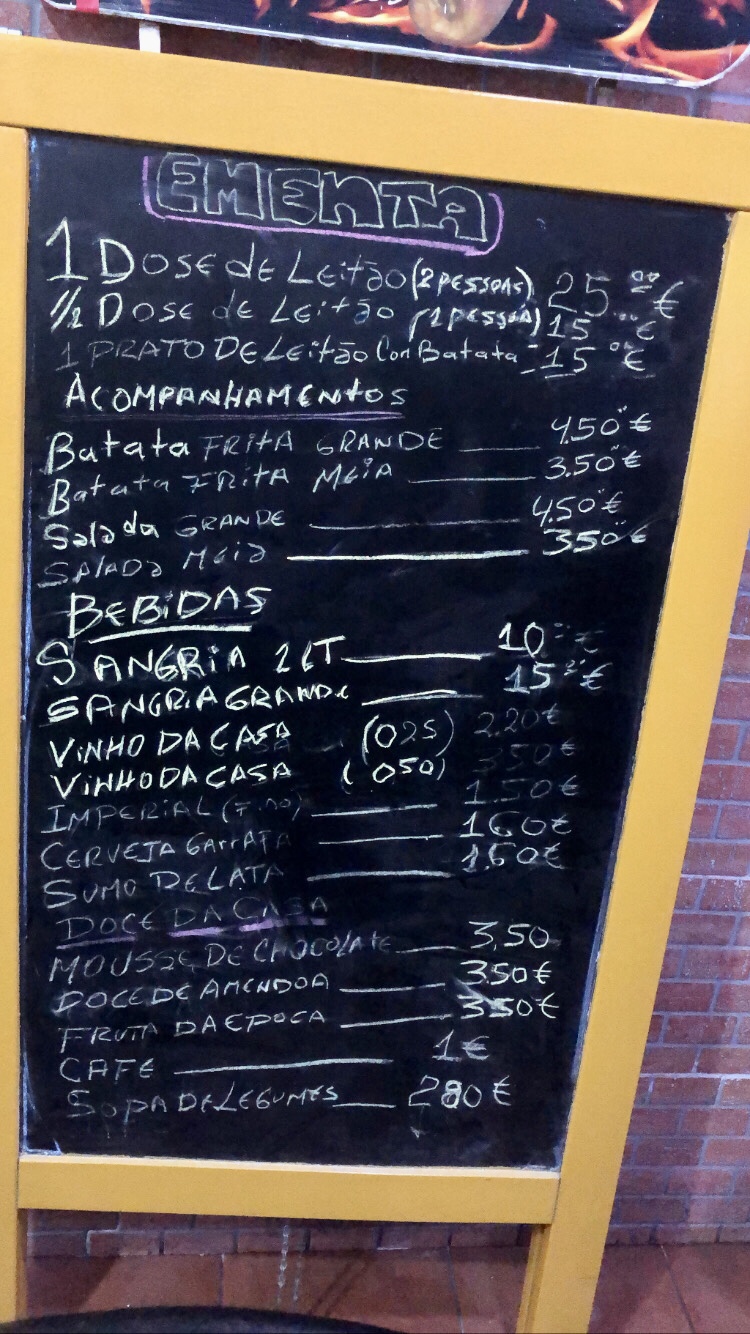 EMENTA
1 Dose de Leitão (2 pessoas) 25,00 €
1/2 Dose de Leitão (1 pessoa) 15,00 €
1 PRATO DE Leitão Con Batata 15,00 €
ACOMPANHAMENTOS
Batata FRITA GRANDE 4.50 €
Batata FRITA MEIA 3.50 €
Salada GRANDE 4.50 €
SALADA Meia 3.50 €
BEBIDAS
SANGRIA 1 LT 10,00 €
SANGRIA GRANDE 15,00 €
VINHO DA CASA (025) 2.20 €
VINHO DA CASA (050) 3.50 €
IMPERIAL (Fino) 1.50 €
CERVEJA GARRAFA 1.60 €
SUMO DE LATA 1.60 €
DOCE DA CASA
MOUSSE DE CHOCOLATE 3.50
DOCE DE AMENDOA 3.50 €
FRUTA DA EPOCA 3.50 €
CAFE 1 €
SOPA DE LEGUMES 280 €